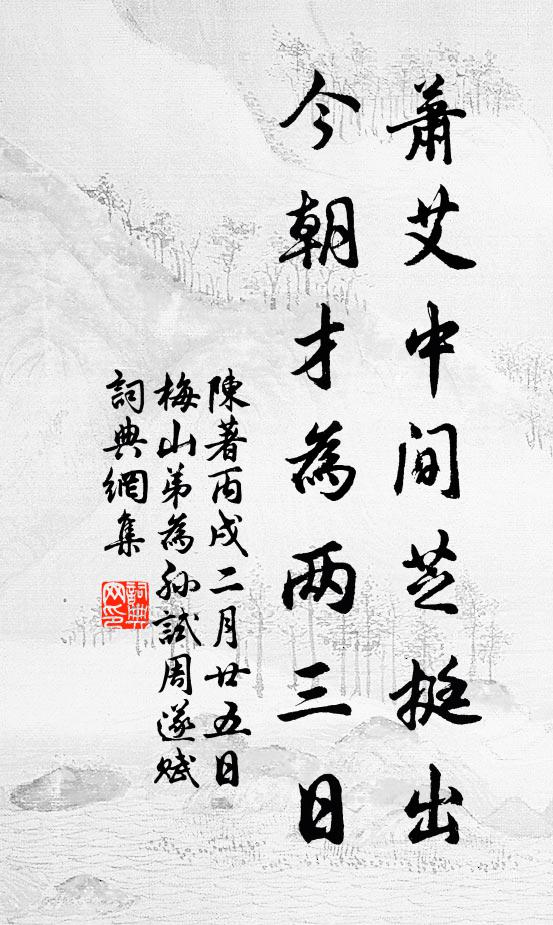 蕭艾中間芝挺出
今朝才為兩三日
陳著丙戌二月廿五日
梅山弟為孫試周遂賦
詞典網集
詞典網印